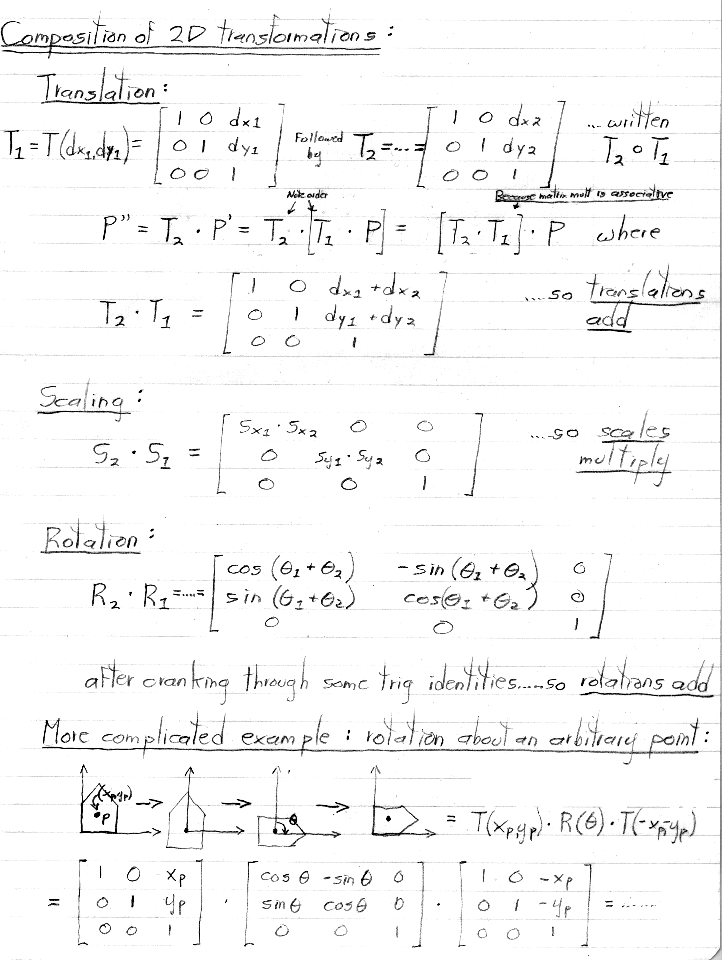 Composition of 2D transformations:
Translation:
T1 = T(dx1,dy1) = [1 0 dx1; 0 1 dy1; 0 0 1] Followed by T2 = ... = [1 0 dx2; 0 1 dy2; 0 0 1] ...written T2 ∘ T1
Note order
Because matrix mult is associative
P'' = T2 · P' = T2 · [T1 · P] = [T2 · T1] · P where
T2 · T1 = [1 0 dx1+dx2; 0 1 dy1+dy2; 0 0 1] ....so translations add
Scaling:
S2 · S1 = [Sx1·Sx2 0 0; 0 Sy1·Sy2 0; 0 0 1] ....so scales multiply
Rotation:
R2 · R1 = .... = [cos(θ1+θ2) -sin(θ1+θ2) 0; sin(θ1+θ2) cos(θ1+θ2) 0; 0 0 1]
after cranking through some trig identities.....so rotations add
More complicated example: rotation about an arbitrary point:
(xp,yp)
P
θ
= T(xp,yp) · R(θ) · T(-xp,-yp)
= [1 0 xp; 0 1 yp; 0 0 1] · [cos θ -sin θ 0; sin θ cos θ 0; 0 0 1] · [1 0 -xp; 0 1 -yp; 0 0 1] = ......